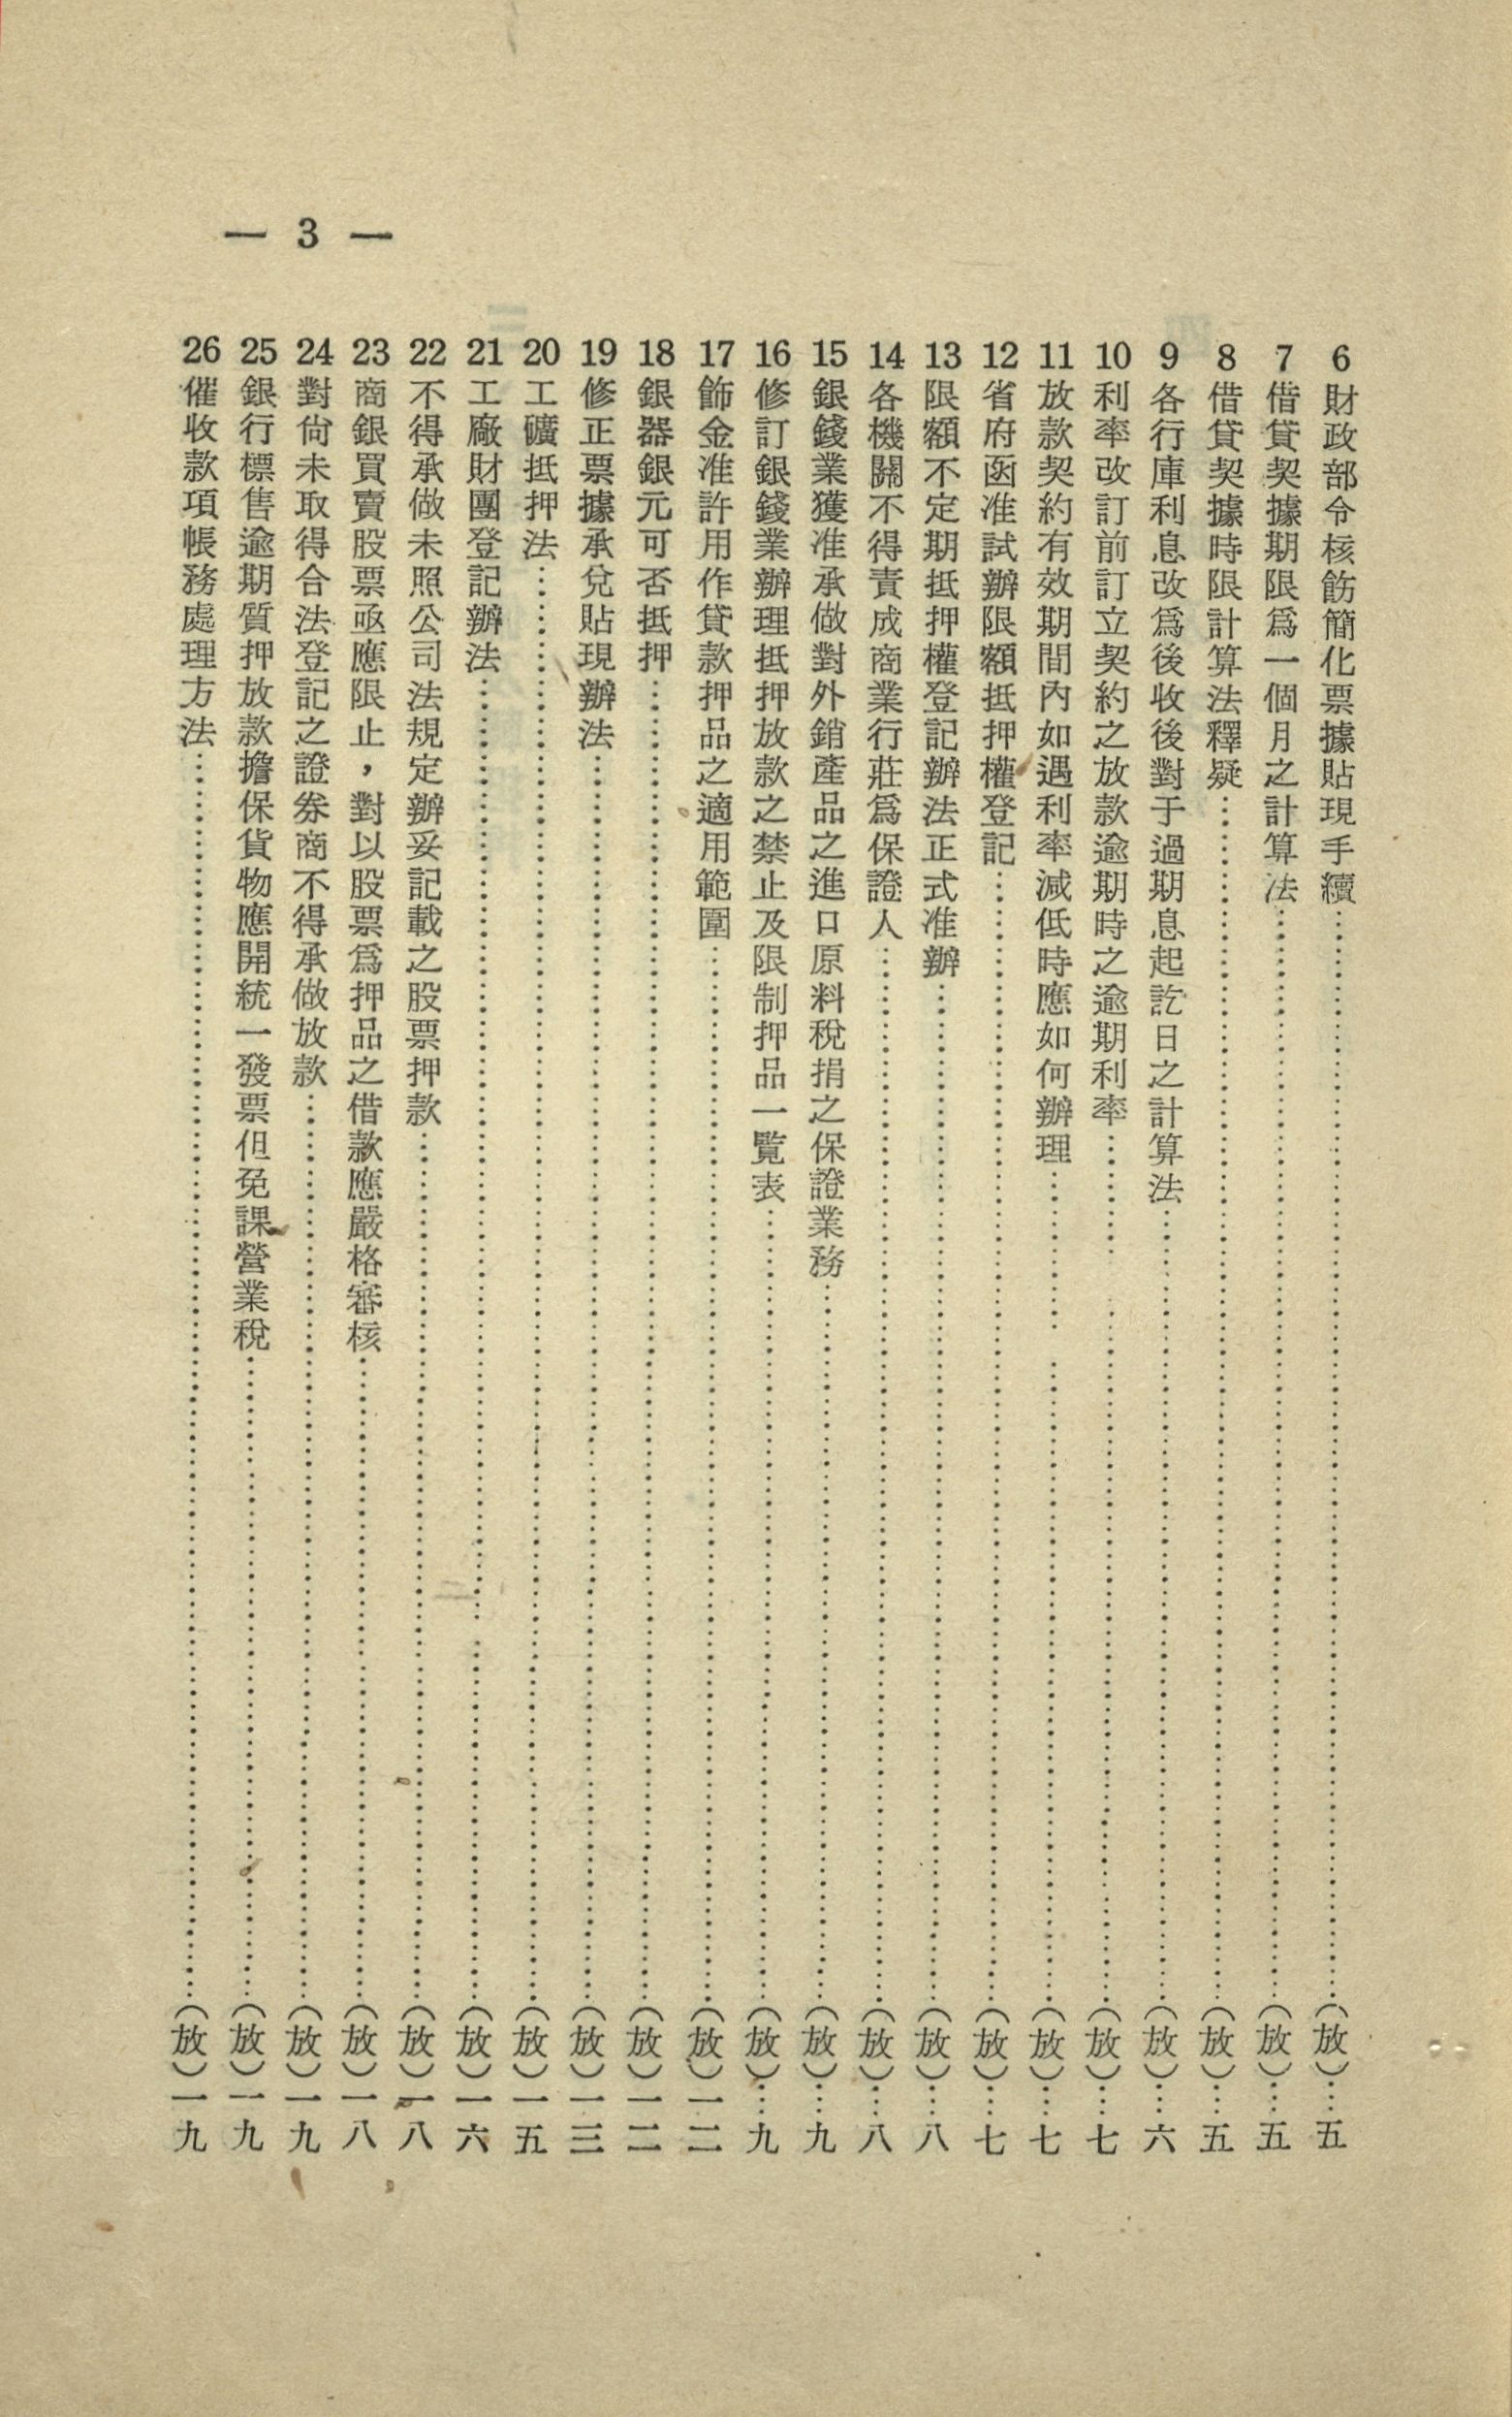 — 3 —
6 財政部令核飭簡化票據貼現手續……(放)…五
7 借貸契據期限爲一個月之計算法……(放)…五
8 借貸契據時限計算法釋疑……(放)…五
9 各行庫利息改爲後收後對于過期息起訖日之計算法……(放)…六
10 利率改訂前訂立契約之放款逾期時之逾期利率……(放)…七
11 放款契約有效期間內如遇利率減低時應如何辦理……(放)…七
12 省府函准試辦限額抵押權登記……(放)…七
13 限額不定期抵押權登記辦法正式准辦……(放)…八
14 各機關不得責成商業行莊爲保證人……(放)…八
15 銀錢業獲准承做對外銷產品之進口原料稅捐之保證業務……(放)…九
16 修訂銀錢業辦理抵押放款之禁止及限制押品一覽表……(放)…九
17 飾金准許用作貸款押品之適用範圍……(放)一二
18 銀器銀元可否抵押……(放)一二
19 修正票據承兌貼現辦法……(放)一三
20 工礦抵押法……(放)一五
21 工廠財團登記辦法……(放)一六
22 不得承做未照公司法規定辦妥記載之股票押款……(放)一八
23 商銀買賣股票亟應限止，對以股票爲押品之借款應嚴格審核……(放)一八
24 對尙未取得合法登記之證券商不得承做放款……(放)一九
25 銀行標售逾期質押放款擔保貨物應開統一發票但免課營業稅……(放)一九
26 催收款項帳務處理方法……(放)一九